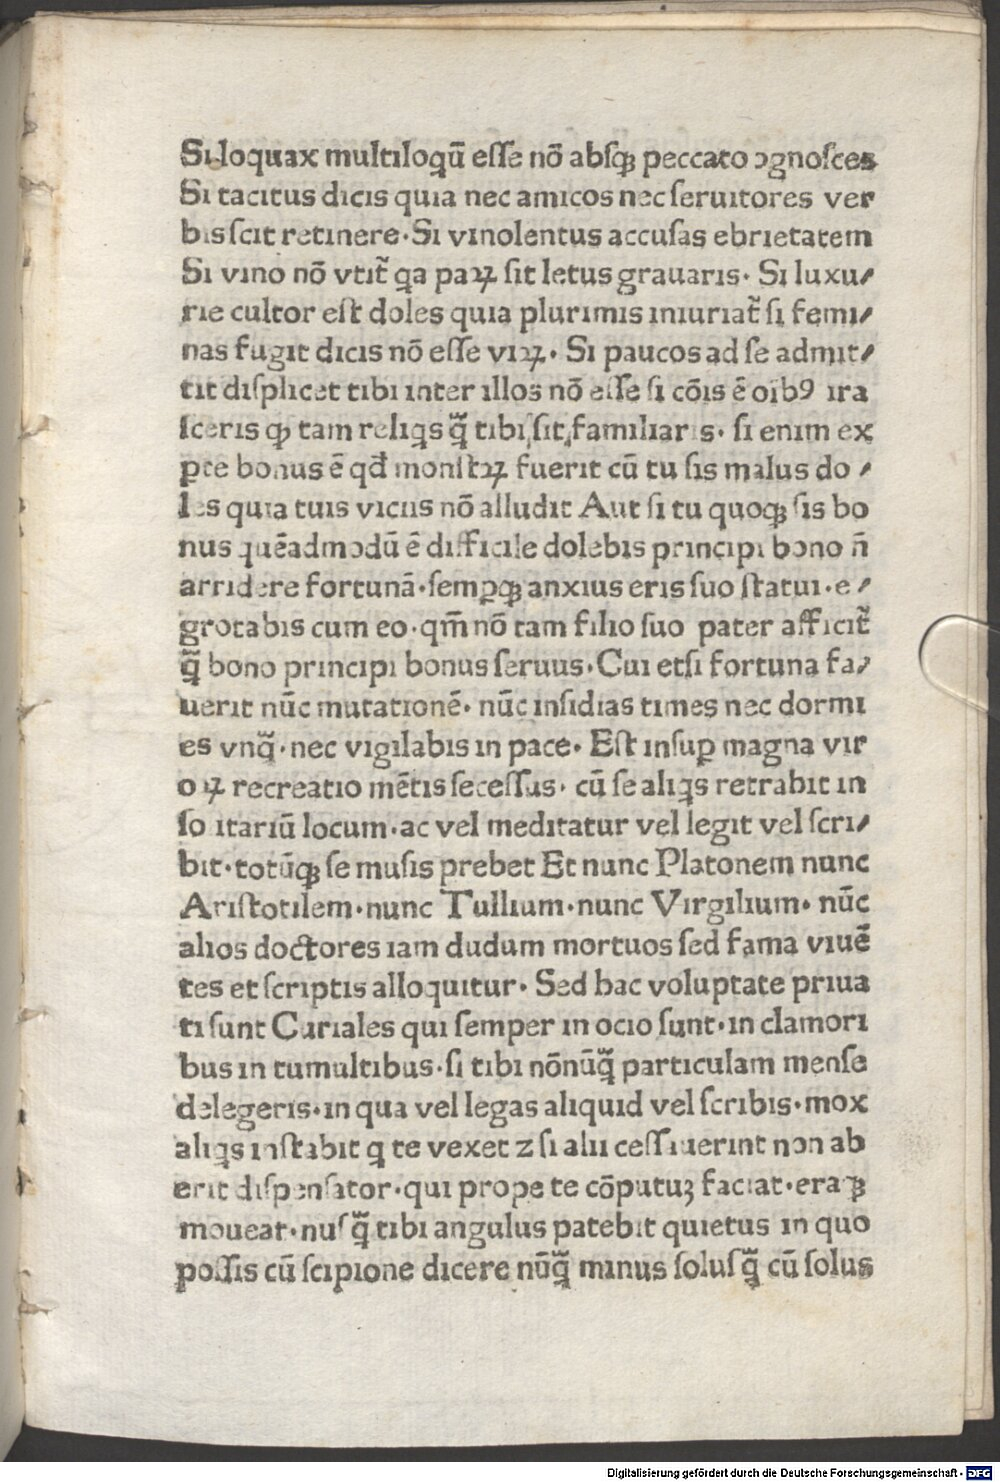 Si loquax multiloqū eſſe nō abſqꝫ peccato ɔgnoſces
Si tacitus dicis quia nec amicos nec ſeruitores ver
bis ſcit retinere·Si vinolentus accuſas ebrietatem
Si vino nō vtit̃ qa paꝝ ſit letus grauaris· Si luxu⸗
rie cultor eſt doles quia plurimis iniuriat̃ ſi femi⸗
nas fugit dicis nō eſſe viꝝ· Si paucos ad ſe admit⸗
tit diſplicet tibi inter illos nō eſſe ſi cōis ē oīb9 ira
ſceris ꝙ tam reliqs q̃ tibi ſit familiaris· ſi enim ex
ꝑte bonus ē qđ monſtꝝ fuerit cū tu ſis malus do⸗
les quia tuis viciis nō alludit Aut ſi tu quoqꝫ ſis bo
nus quēadmodū ē difficile dolebis principi bono n̄
arridere fortunā·ſemꝑqꝫ anxius eris ſuo ſtatui·e⸗
grotabis cum eo·qm̄ nō tam filio ſuo pater afficit̃
q̃ bono principi bonus ſeruus·Cui etſi fortuna fa⸗
uerit nūc mutationē· nūc inſidias times nec dormi
es vnq̃·nec vigilabis in pace· Eſt inſuꝑ magna vir
oꝝ recreatio mētis ſeceſſus· cū ſe aliqs retrahit in
ſo itariū locum·ac vel meditatur vel legit vel ſcri⸗
bit·totūqꝫ ſe muſis prebet Et nunc Platonem nunc
Ariſtotilem·nunc Tullium·nunc Virgilium· nūc
alios doctores iam dudum mortuos ſed fama viuē
tes et ſcriptis alloquitur· Sed hac voluptate priua
ti ſunt Curiales qui ſemper in ocio ſunt·in clamori
bus in tumultibus·ſi tibi nōnūq̃ particulam menſe
delegeris·in qua vel legas aliquid vel ſcribis·mox
aliqs inſtabit q te vexet z ſi alii ceſſauerint non ab
erit diſpenſator·qui prope te cōputuꝫ faciat·eraqꝫ
moueat·nuſq̃ tibi angulus patebit quietus in quo
poſſis cū ſcipione dicere nūq̃ minus ſoluſq̃ cū ſolus
Digitalisierung gefördert durch die Deutsche Forschungsgemeinschaft - DFG